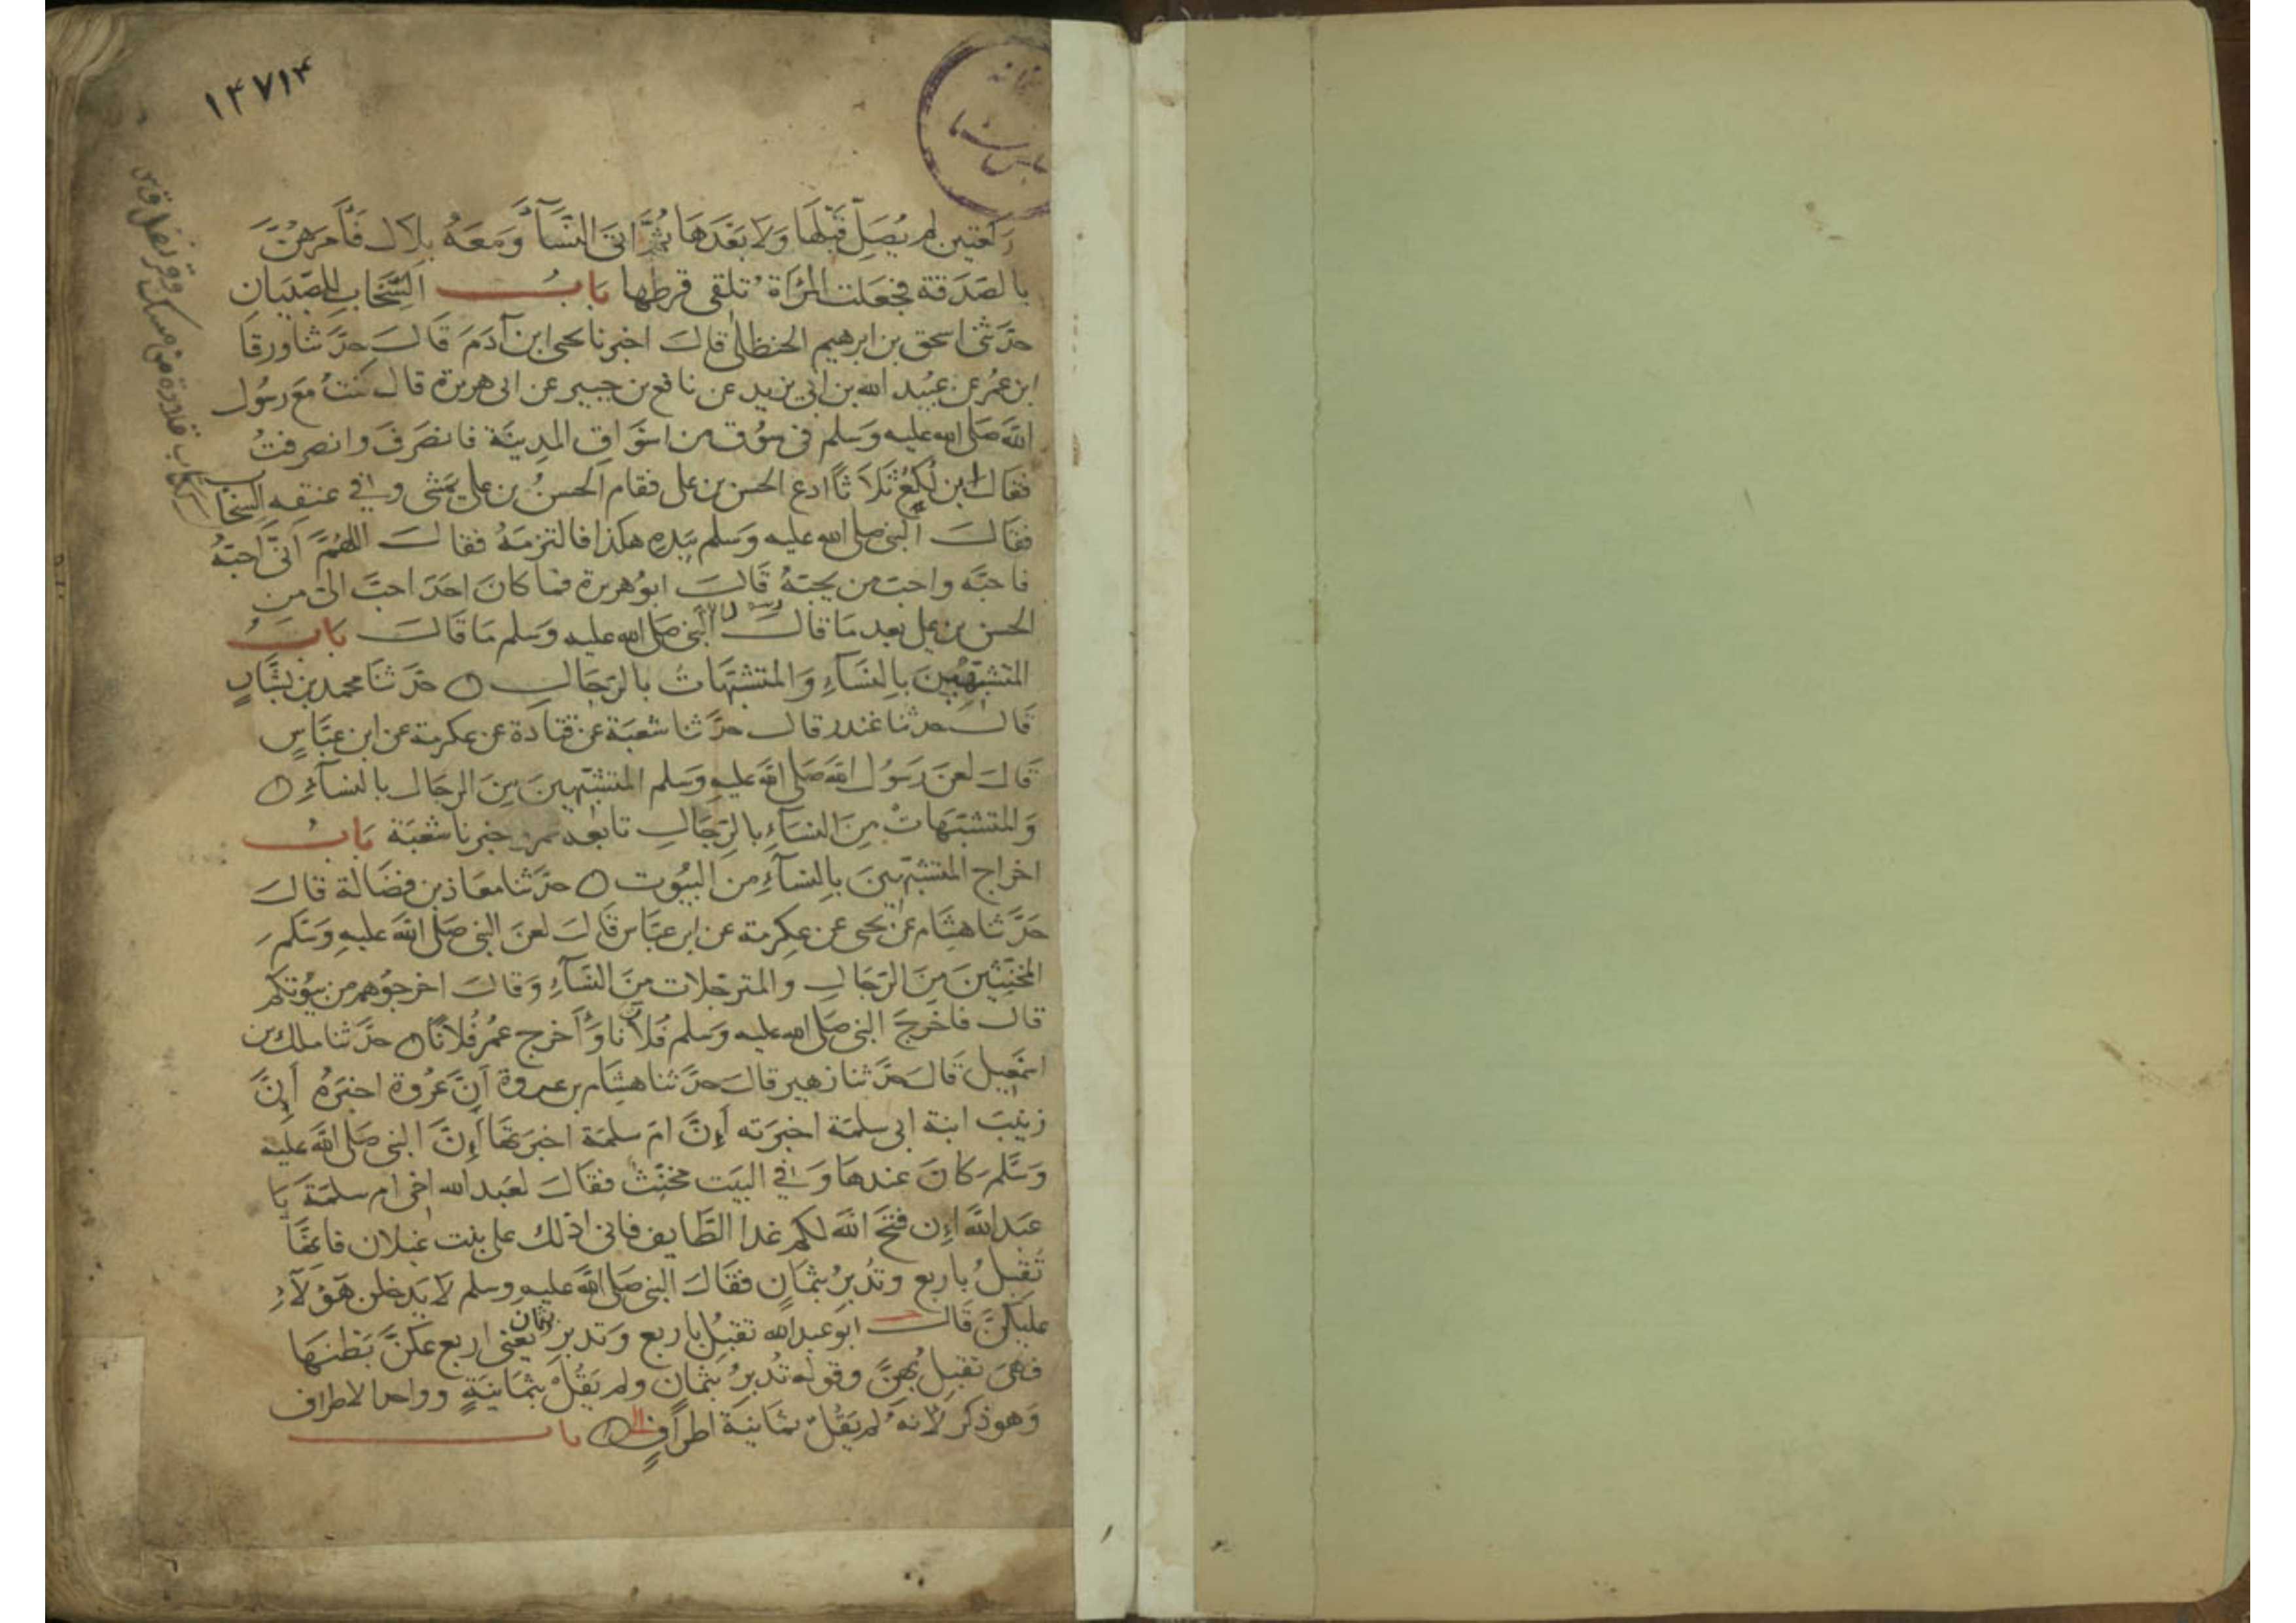 ١٤٧١٤
ركعتين لم يُصَلِّ قَبْلَهَا وَلَا بَعْدَهَا ثُمَّ اتى النِّسَآءَ وَمَعَهُ بِلَال فَأَمَرَهُنَّ
بالصَدَقة فجَعَلت المرْاَة تُلقى قرطها بَابُ السِّخَابِ للصّبْيَان
حدّثنى اسحق بن ابرهيم الحنظلى قال اخبرنا يحيى ابن آدَمَ قَالَ حدَّثنا ورقَا
ابن عمُر عن عبيْد الله بن ابي يزيد عن نافع بن جبير عن ابى هريرة قال كنتُ مَعَ رسُول
الله صَلى الله عليه وَسَلم فى سوُق من اسْوَاقِ المدِينَة فانصَرَفَ وانصرفتُ
فقال اين لُكَعُ ثَلَاثًا ادع الحسن بن على فقام الحسنُ بن على يمَشى وفي عنقه السِّخَاب
فقَالَ النبى صلى الله عليه وَسَلم بيَدِهِ هكذا فالتزمَهُ فقالَ اللهُمَّ اَنّى اُحبّهُ
فاحبَّه واحبّ من يحبّهُ قَالَ ابوُ هريرة فما كانَ احَدَ احبَّ الىَّ من
الحسن بن على بعد مَا قالَ رسول الله النبى صَلى الله عليه وَسَلم مَا قَالَ بَابُ
المتشبّهِينَ بِالنِسَآءِ وَالمتشبّهَاتُ بالرّجَالِ ٥ حَدّثنَا محمد بن بَشَّارٍ
قَالَ حدثنا غندر قال حدَّثنا شعبَة عن قتادة عن عكرمة عن ابن عَبَّاسٍ
قَالَ لعَنَ رَسُول الله صَلى الله عليهِ وَسَلم المتشبّهينَ مِنَ الرِجَال بالنسآءِ ٥
وَالمتشبّهَاتْ مِنَ النسَاءِ بِالرّجَالِ تابعه عمرو خبرنا شعبَة بَابُ
اخراج المتشبّهينَ بِالنسَآءِ مِن البيُوت ٥ حدَّثنا معَاذ بن فضَالة قالَ
حَدَّثنا هِشَام عَن يحيى عن عكرمة عن ابن عبَّاس قالَ لعَنَ النبى صَلى الله عليهِ وَسَلم
المخنّثينَ مِنَ الرّجَالِ والمترجّلات مِنَ النسَآءِ وَقالَ اخرجوُهم من بيوُتكم
قال فاخرَجَ النبى صَلى الله عليه وَسلم فُلَانا وَأخرج عمُر فُلانًا ٥ حدَّثنا ملك بن
اسمعِيل قَالَ حدَّثنا زهير قالَ حدَّثنا هشام بن عروة اَنَّ عُروة اخبَرَهُ اَنَّ
زينَبَ ابنة ابى سلمَة اخبرَته اَنَّ امّ سلمَة اخبرَتهَا اَنَّ النبى صَلى الله عليه
وَسَّلَم كانَ عندهَا وَفي البيَت مخنّث فقالَ لعَبد الله اخى ام سلمَة يَا
عَبد الله اِن فتحَ الله لكم غدا الطّايف فانى ادلك على بنت غيلان فانهَّا
تُقبلُ باربع وتُدبرُ بثمَانٍ فقَالَ النبى صَلى الله عليهِ وسلم لَا يَدخلن هَؤلَآءِ
عليكنَّ قَالَ ابو عبد الله تقبلُ باربع وَتدبرُ بثمان يعَنى اربع عكَنَّ بَطنهَا
فهىَ تقبلُ بهنَّ وقوله تُدبرُ بثَمانٍ ولم يَقُلْ بثمَانِيَةٍ وواحد الاطراف
وَهو ذكر لاَنهُ لم يَقُل ثمانيَة اطرافٍ ٥ بابُ